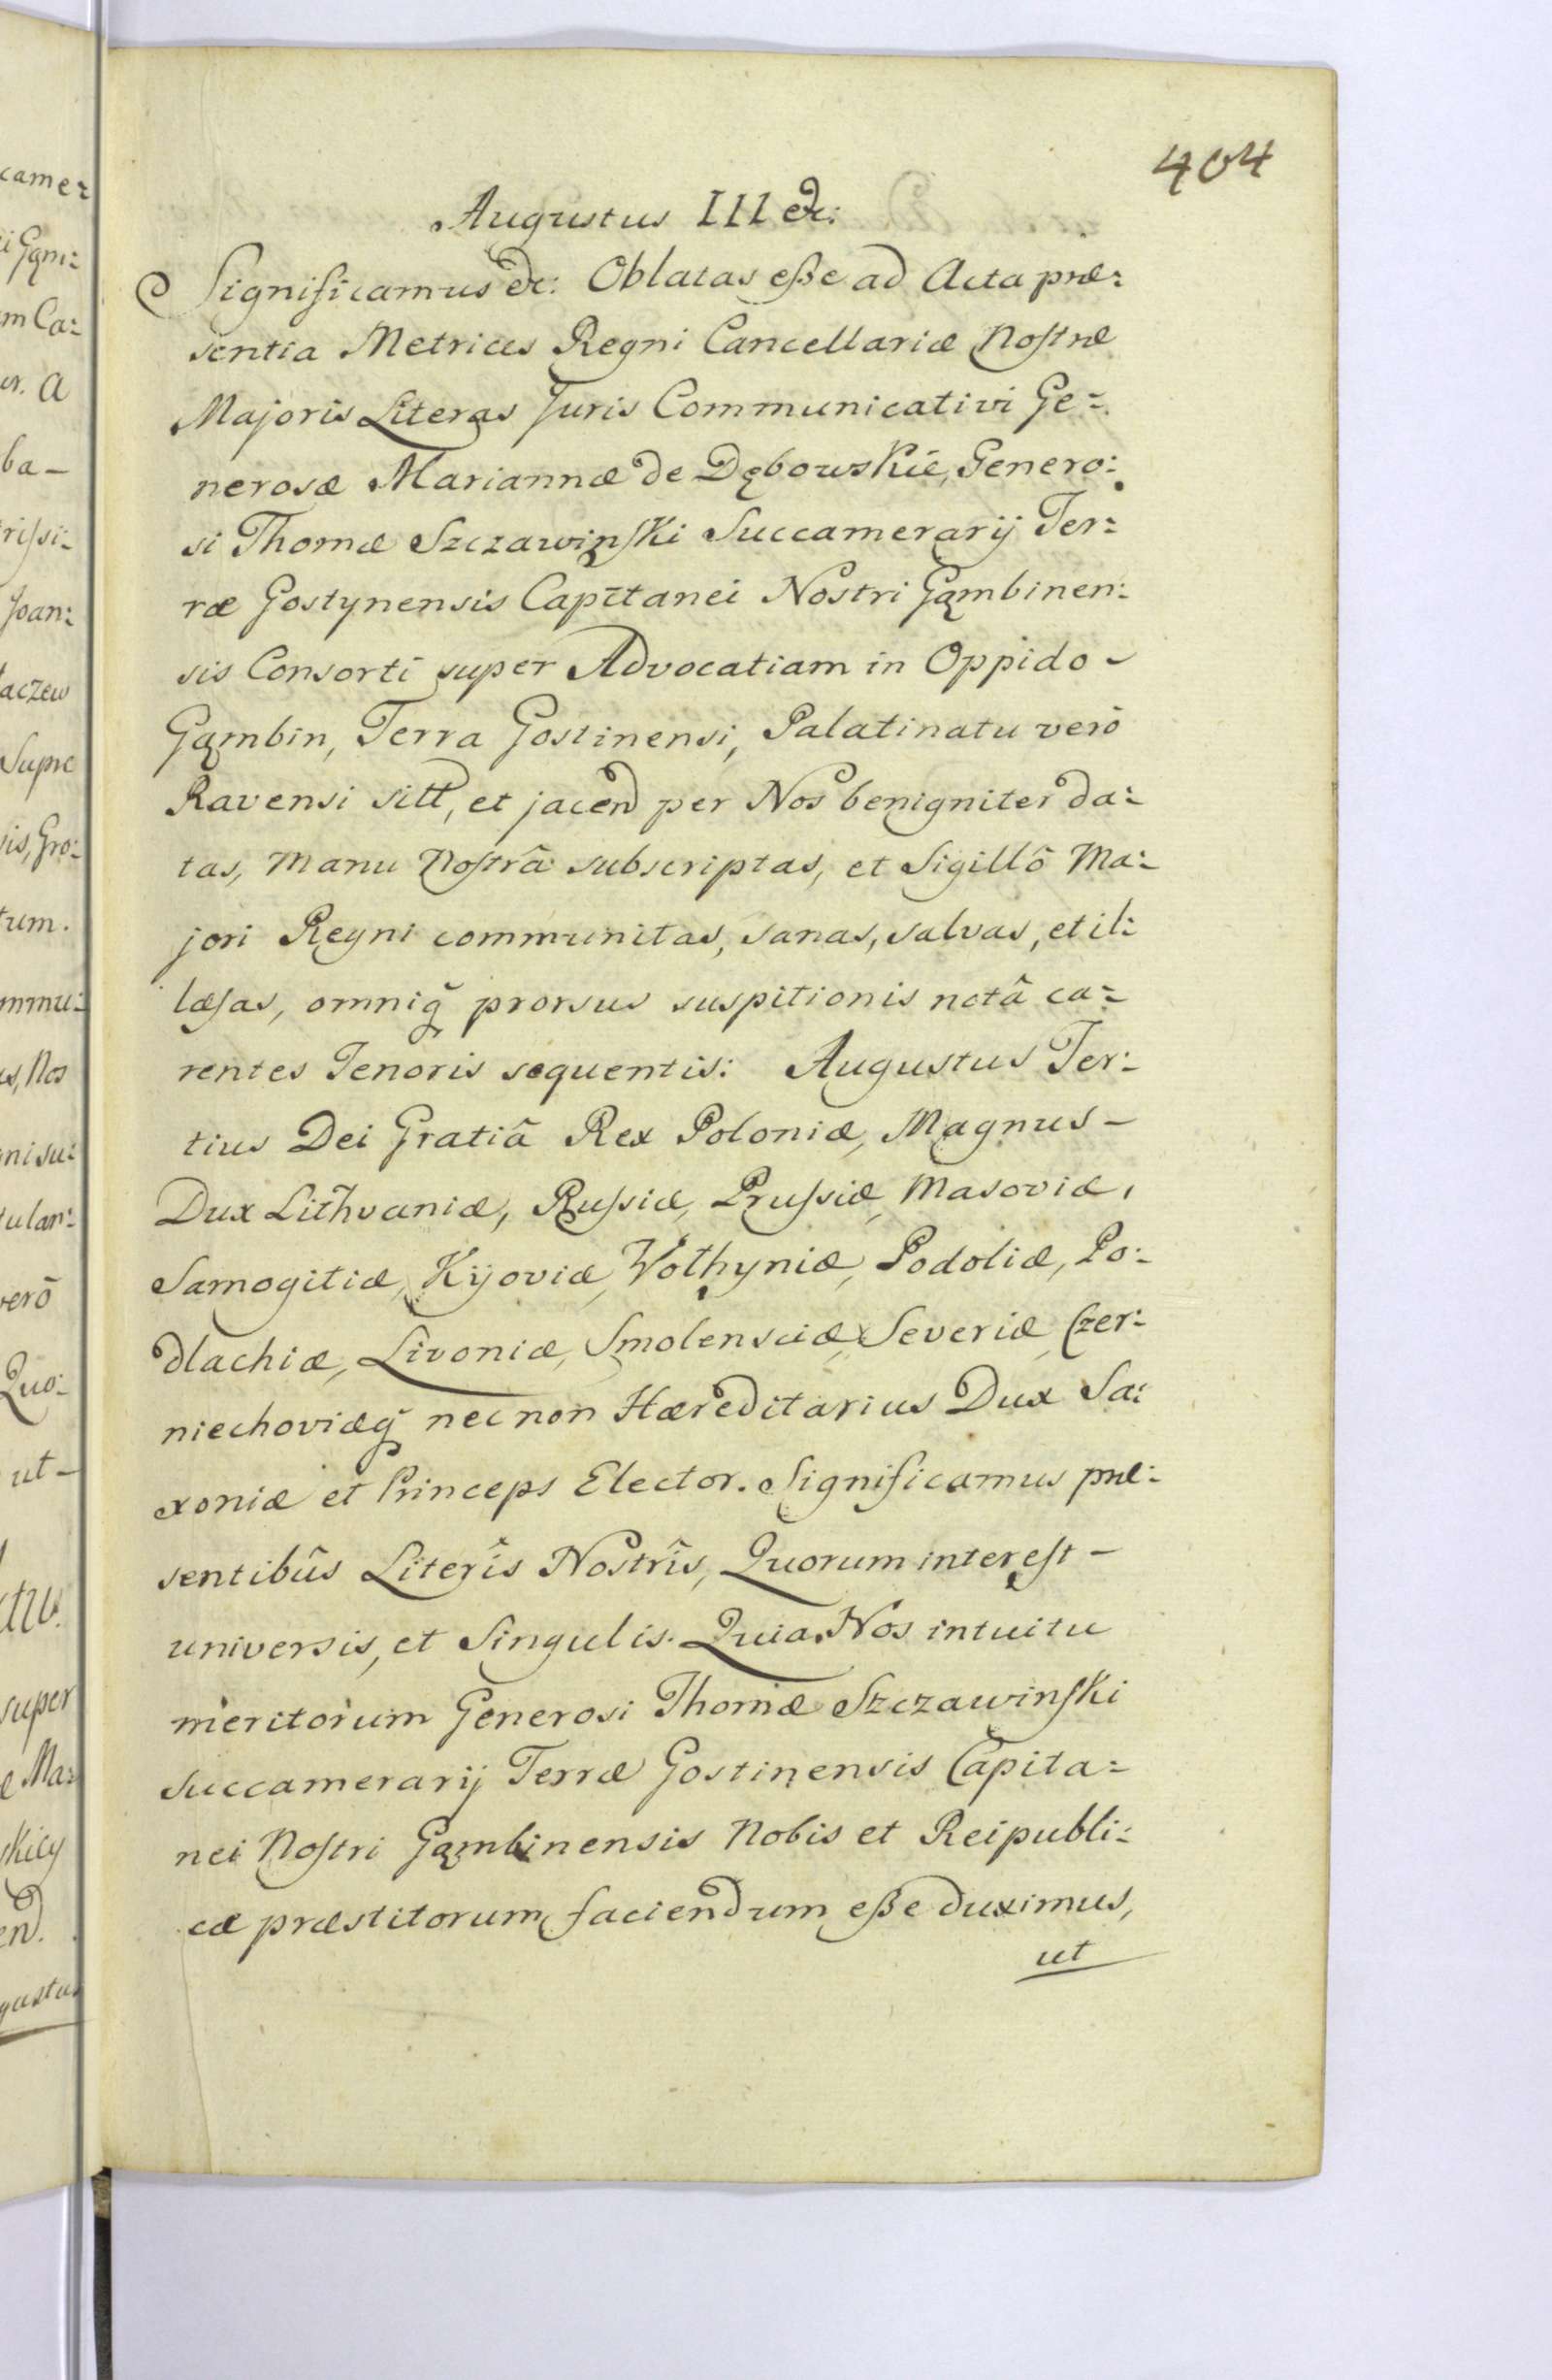 404
Augustus III &c:
Significamus &c: Oblatas eße ad Acta præ:
sentia Metrices Regni Cancellariæ Noſtræ
Majoris Literas Juris Communicativi Ge=
nerosæ Mariannæ de Dębowskie, Genero:
si Thomæ Szczawinſki Succamerarij Ter:
ræ Gostynensis Capitanei Nostri Gąmbinen:
sis Consorti super Advocatiam in Oppido -
Gąmbin, Terra Gostinensi, Palatinatu verò
Ravensi sitt, et jacen per Nos benigniter da:
tas, Manu Noſtrâ subscriptas, et Sigillô Ma:
jori Regni communitas, sanas, salvas, et il:
læſas, omniq̃ prorsus suspitionis notâ ca=
rentes Tenoris sequentis: Augustus Ter:
tius Dei Gratiâ Rex Poloniæ, Magnus -
Dux Lithvaniæ, Ruſsiæ, Pruſsiæ, Masoviæ,
Samogitiæ, Kijoviæ, Volhyniæ, Podoliæ, Po:
dlachiæ, Livoniæ, Smolensciæ, Severiæ, Czer:
niechoviæq̃ nec non Hæreditarius Dux Sa:
xoniæ et Princeps Elector. Significamus præ:
sentibûs Literîs Nostrîs, Quorum intereſt -
universis, et Singulis. Quia Nos intuitu
meritorum Generosi Thomæ Szczawinſki
Succamerarij Terræ Gostinensis Capita=
nei Noſtri Gąmbinensis Nobis et Reipubli:
cæ præstitorum, faciendum eße duximus,
ut